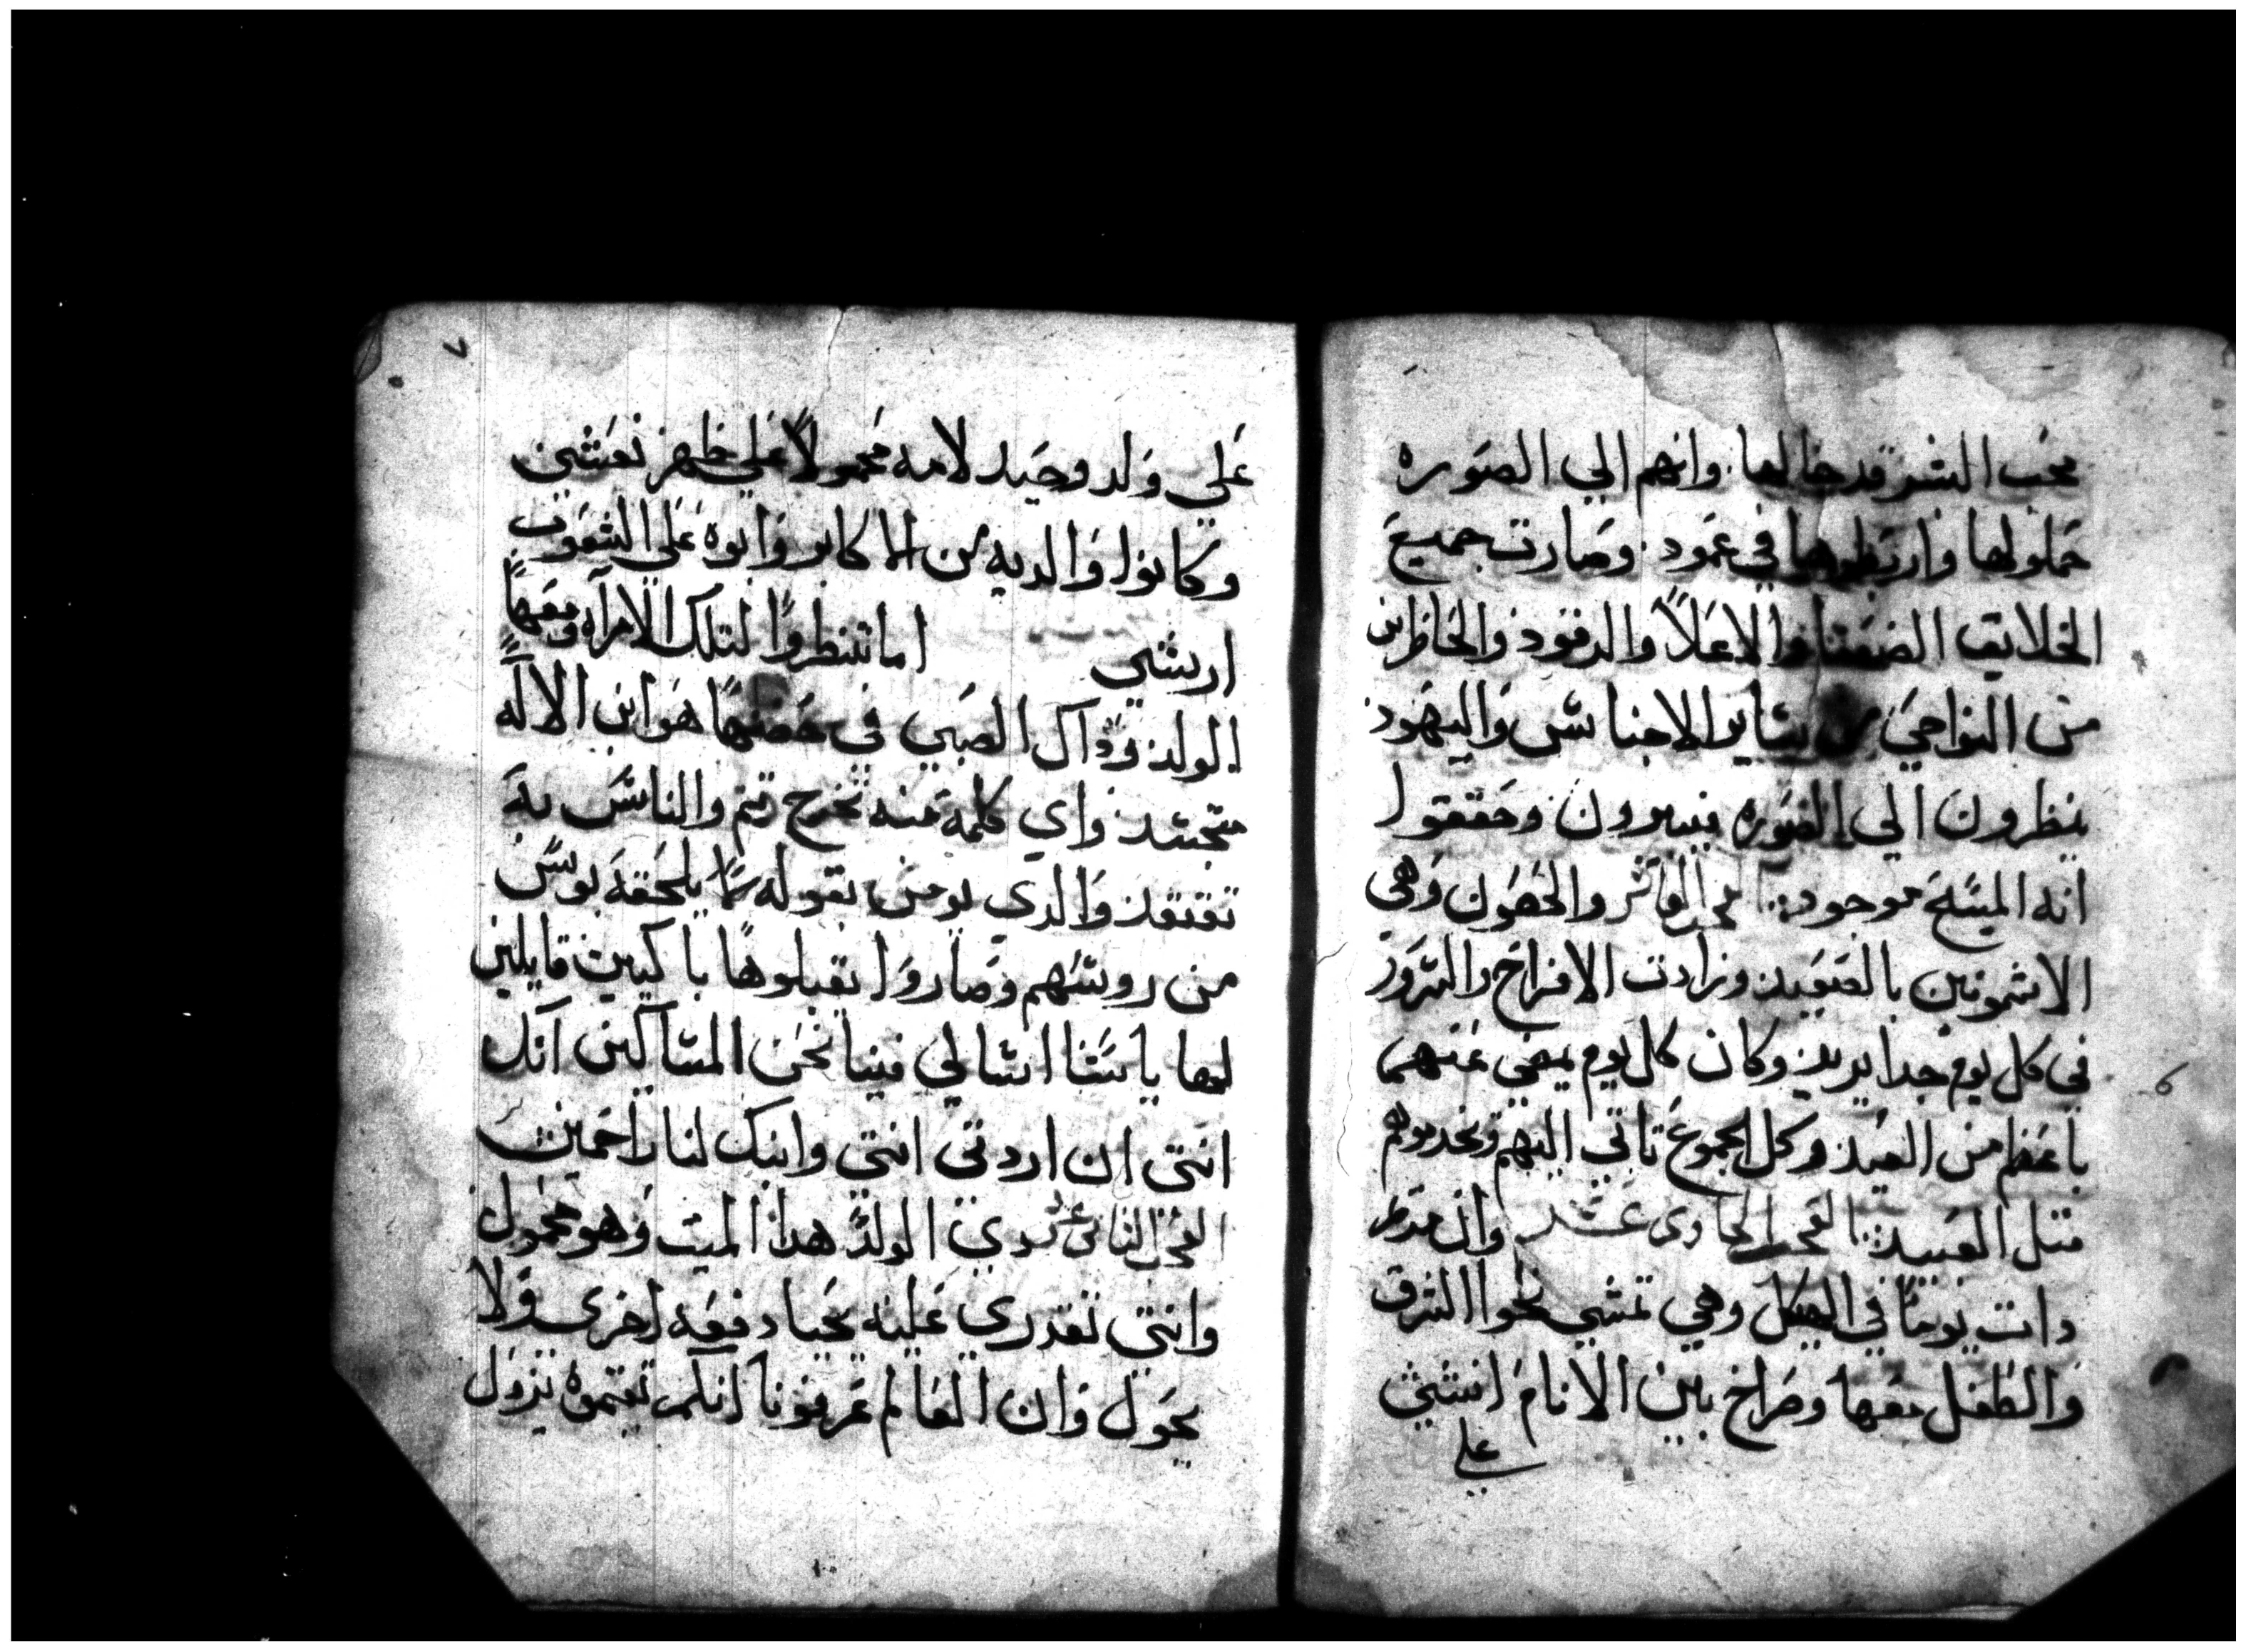 محب الشر قد جا لها وانهم الي الصوره
حملولها واربطوها في عمود وصارت جميع
الخلايق الضعفا والاعلا والدفود والحاظرين
من النواحي من ساير الاجناس واليهود
ينظرون الي الصوره يسيرون وحققوا
انه المسيح موجود العاشر والحصون وهى
الاشمونين بالصعيد وزادت الافراح والسرور
في كل يوم جدا يزيد وكان كل يوم يمضي عنهم
باعظم من العيد وكل الجموع تاتي اليهم وتخدموهم
متل العبيد الحادى عشر وان مطر
دات يوما في الهيكل وهي تمشي نحوا الشرق
والطفل معها وصراخ بين الانام انشي
علي
٧
علي ولد وحيد لامه محمولا علي ظهر نعشين
وكانوا والديه من الاكابر وابوه علي الشعوب
اريشي اما تنظروا لتلك الامراه ومعها
الولد دآك الصبي في حضنها هو ابن الالاه
متجسد واي كلمة منه تخرج تتم والناس به
تفتقد والدي يومن بقوله ما يلحقه بوس
من روسهم وصاروا يقبلوها باكيين قايلين
لها يا ستنا اسالي فينا نحن المساكين آنك
انتي ان اردتي انتي وابنك لنا راحمين
الثاني عشر دي الولد هدا الميت وهو محمول
وانتي تقدري عليه يحيا دفعه اخرى ولا
يحول وان العالم عرفونا انكم تقيموه يزول